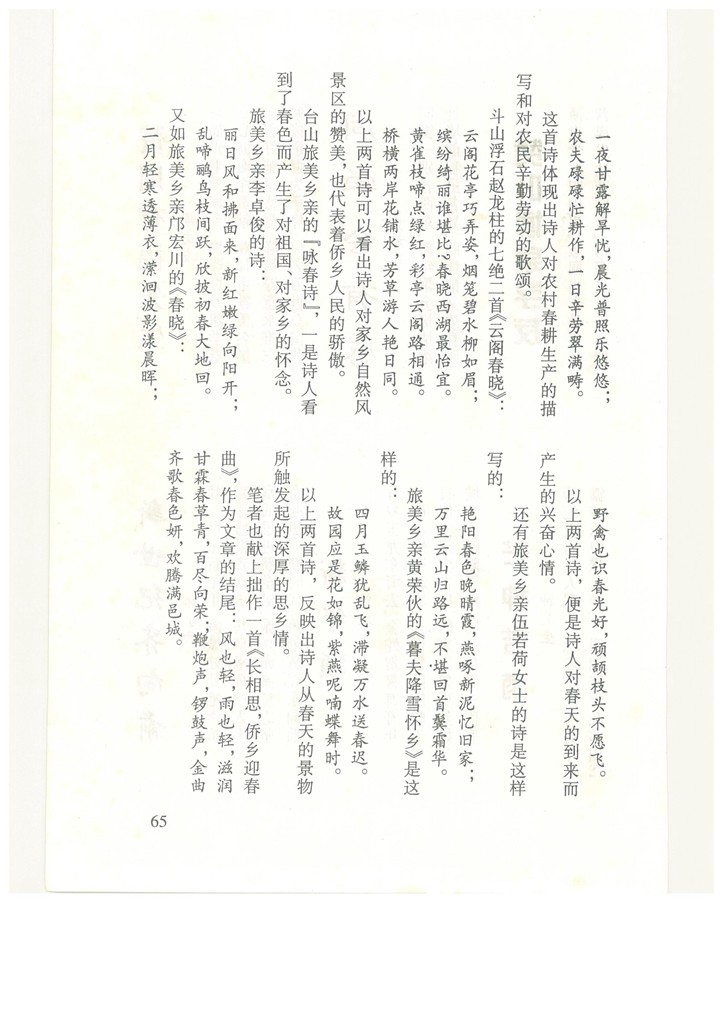 一夜甘露解旱忧，晨光普照乐悠悠；
农夫碌碌忙耕作，一日辛劳翠满畴。
这首诗体现出诗人对农村春耕生产的描
写和对农民辛勤劳动的歌颂。
斗山浮石赵龙柱的七绝二首《云阁春晓》：
云阁花亭巧弄姿，烟笼碧水柳如眉；
缤纷绮丽谁堪比？春晓西湖最怡宜。
黄雀枝啼点绿红，彩亭云阁路相通。
桥横两岸花铺水，芳草游人艳日同。
以上两首诗可以看出诗人对家乡自然风
景区的赞美，也代表着侨乡人民的骄傲。
台山旅美乡亲的『咏春诗』，一是诗人看
到了春色而产生了对祖国、对家乡的怀念。
旅美乡亲李卓俊的诗：
丽日风和拂面来，新红嫩绿向阳开；
乱啼鹂鸟枝间跃，欣披初春大地回。
又如旅美乡亲邝宏川的《春晓》：
二月轻寒透薄衣，潆洄波影漾晨晖；
野禽也识春光好，颃颉枝头不愿飞。
以上两首诗，便是诗人对春天的到来而
产生的兴奋心情。
还有旅美乡亲伍若荷女士的诗是这样
写的：
艳阳春色晚晴霞，燕啄新泥忆旧家；
万里云山归路远，不堪回首鬓霜华。
旅美乡亲黄荣伙的《暮夫降雪怀乡》是这
样的：
四月玉鳞犹乱飞，滞凝万水送春迟。
故园应是花如锦，紫燕呢喃蝶舞时。
以上两首诗，反映出诗人从春天的景物
所触发起的深厚的思乡情。
笔者也献上拙作一首《长相思，侨乡迎春
曲》，作为文章的结尾：风也轻，雨也轻，滋润
甘霖春草青，百尽向荣；鞭炮声，锣鼓声，金曲
齐歌春色妍，欢腾满邑城。
65